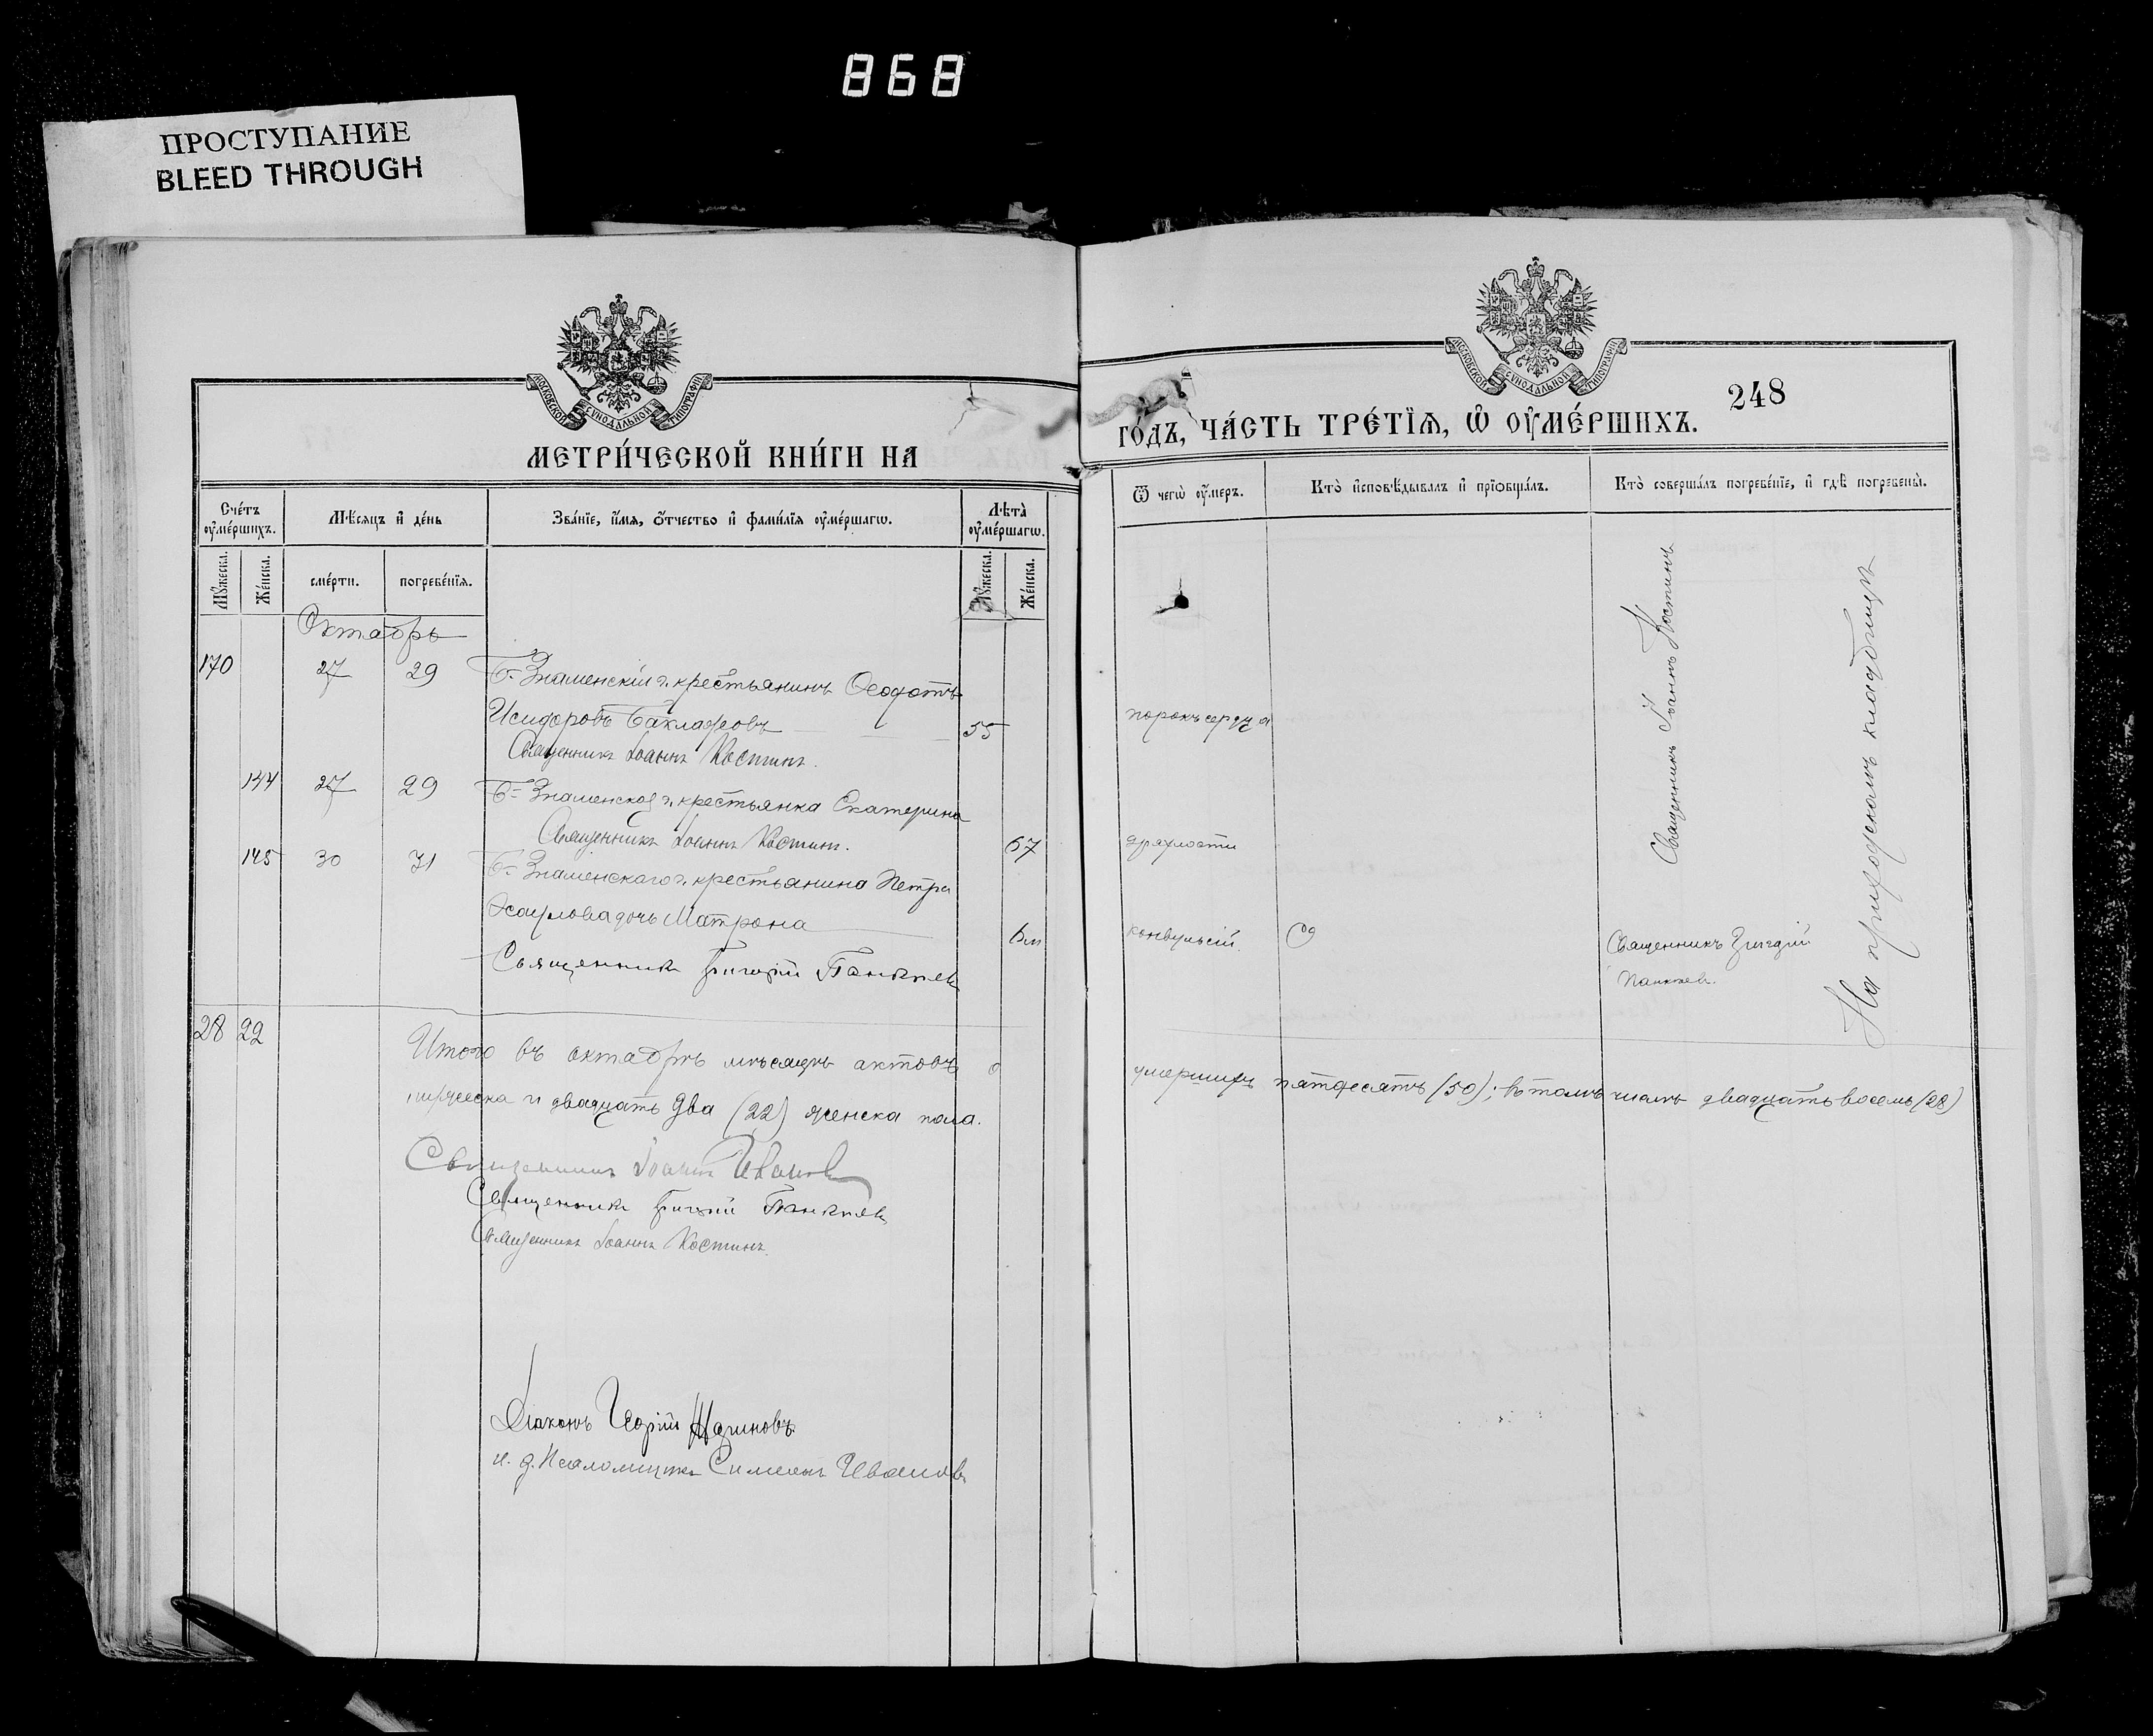 868
ПРОСТУПАНИЕ
BLEED THROUGH
МОСКОВСКОЙ СѴНОДАЛЬНОЙ ТИПОГРАФІИ
МЕТРИ́ЧЕСКОЙ КНИ́ГИ НА
Сче́тъ ᲂу҆ме́ршихъ.
Мѣ́сяцъ и҆ де́нь
Зва́нїе, и҆́мѧ, ѻ҆́тчество и҆ фами́лїѧ ᲂу҆ме́ршагѡ.
Лѣ̀та ᲂу҆ме́ршагѡ.
Мꙋ́жеска.
Же́нска.
сме́рти.
погребе́нїѧ.
Мꙋ́жеска.
Же́нска.
Октябрь
170 27 29 Б-Знаменскій г. крестьянинъ Ѳеодотъ
Исидоровъ Баклановъ 55
Священникъ Іоаннъ Костинъ.
144 27 29 Б-Знаменской г. крестьянка Екатерина
Священникъ Іоаннъ Костинъ. 67
145 30 31 Б-Знаменскаго г. крестьянина Петра
дочь Матрона 6 м
Священникъ Григорій Панкѣев
28 22
Итого въ октябрѣ мѣсяцѣ актовъ о
мужеска и двадцать два (22) женска пола.
Священникъ Іоаннъ Иванов
Священникъ Григорій Панкѣев
Священникъ Іоаннъ Костинъ.
Діаконъ Георгій
и. д. Псаломщика Симеонъ Иванов
МОСКОВСКОЙ СѴНОДАЛЬНОЙ ТИПОГРАФІИ
248
ГО́ДЪ, ЧА́СТЬ ТРЕ́ТЇѦ, Ѡ҆ ОУ҆МЕ́РШИХЪ.
Ѿ чегѡ̀ ᲂу҆́меръ.
Кто̀ и҆сповѣ́дывалъ и҆ прїѡбща́лъ.
Кто̀ соверша́лъ погребе́нїе, и҆ гдѣ̀ погребены̀.
порокъ сердца
дряхлости
Священникъ Іоаннъ Костинъ
На приходскомъ кладбищѣ
конвульсій.
Священникъ Григорій
Панкѣев.
умершихъ пятдесятъ (50); въ томъ числѣ двадцать восемь (28)